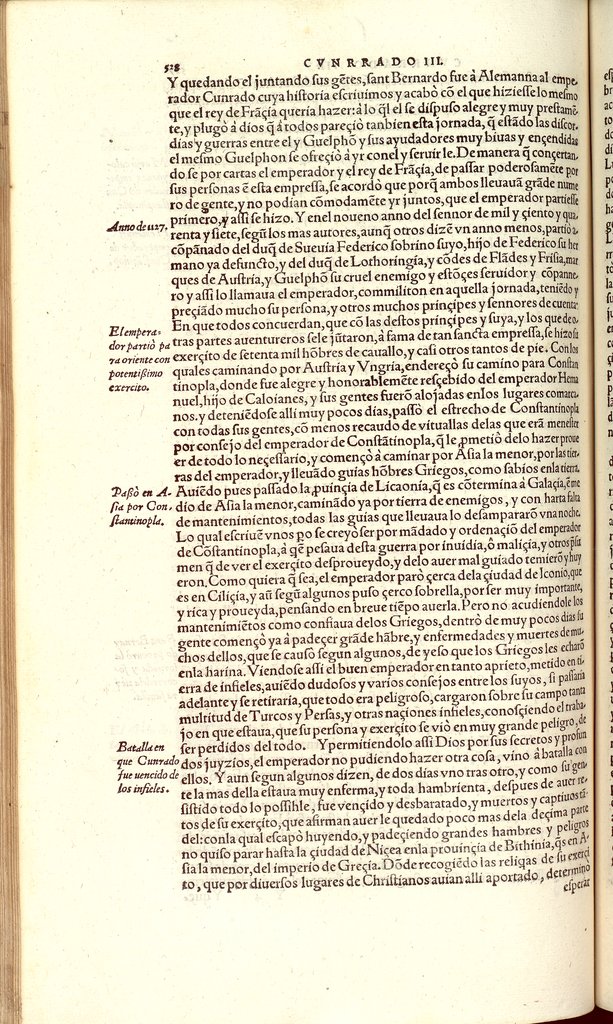 528
CVNRRADO III.
Y quedando el juntando sus gẽtes, sant Bernardo fue à Alemanna al empe
rador Cunrado cuya historia escriuimos y acabò cõ el que hiziesse lo mesmo
que el rey de Frãçia quería hazer: à lo q̃l el se dispuso alegre y muy prestamẽ
te, y plugò à dios q̃ à todos pareçiò tanbien esta jornada, q̃ estãdo las discor
días y guerras entre el y Guelphõ y sus ayudadores muy biuas y ençendidas
el mesmo Guelphon se ofreçiò à yr conel y seruir le. De manera q̃ conçertan
do se por cartas el emperador y el rey de Frãçia, de passar poderosamẽte por
sus personas ẽ esta empressa, se acordò que porq̃ ambos lleuauã grãde nume
ro de gente, y no podían cõmodamẽte yr juntos, que el emperador partiesse
primero, y assi se hizo. Y en el noueno anno del sennor de mil y çiento y qua
Anno de 1127.
renta y siete, segũ los mas autores, aunq̃ otros dizẽ vn anno menos, partiò a
cõpãnado del duq̃ de Sueuía Federico sobrino suyo, hijo de Federico su her
mano ya defuncto, y del duq̃ de Lothoríngía, y cõdes de Flãdes y Frisia, mar
ques de Austría, y Guelphõ su cruel enemigo y estõçes seruidor y cõpanne
ro y assi lo llamaua el emperador, commiliton en aquella jornada, teniẽdo y
preçiãdo mucho su persona, y otros muchos prínçipes y sennores de cuenta.
En que todos concuerdan, que cõ las destos prínçipes y suya, y los que de o
El empera-
dor partiò pa
ra oriente con
potentißimo
exercito.
tras partes auentureros se le jũtaron, à fama de tan sancta empressa, se hizo su
exerçito de setenta mil hõbres de cauallo, y casi otros tantos de píe. Con los
quales caminando por Austría y Vngria, endereçò su camino para Constan
tinopla, donde fue alegre y honorablemẽte resçebido del emperador Hema
nuel, hijo de Caloianes, y sus gentes fuerõ alojadas enlos lugares comarca
nos. y deteniẽdose alli muy pocos días, passò el estrecho de Constantinopla
con todas sus gentes, cõ menos recaudo de vituallas delas que erã menester
por consejo del emperador de Constãtinopla, q̃ le ꝓmetiò de lo hazer proue
er de todo lo neçessarío, y començò à caminar por Asia la menor, por las tier
ras del emperador, y lleuãdo guías hõbres Gríegos, como sabíos enla tierra.
Paßò en A-
sia por Con-
stantinopla.
Auiẽdo pues passado la ꝓuinçia de Licaonía, q̃ es cõtermina à Galaçía, ẽ me
dío de Asia la menor, caminãdo ya por tierra de enemigos, y con harta falta
de mantenimientos, todas las guías que lleuaua lo desampararõ vna noche.
Lo qual escriuẽ vnos ꝓo se creyo ser por mãdado y ordenaçiõ del emperador
de Cõstantinopla, à q̃ẽ pesaua desta guerra por inuidía, ò malíçia, y otros ꝓsu
men q̃ de ver el exerçito desproueydo, y delo auer mal guiado temierõ y huy
eron. Como quiera q̃ sea, el emperador parò çerca dela çiudad de Iconio, que
es en Cilíçia, y aũ segũ algunos puso çerco sobrella, por ser muy importante,
y rica y proueyda, pensando en breue tiẽpo auerla. Pero no acudiendole los
mantenimiẽtos como confiaua delos Griegos, dentrò de muy pocos días su
gente començò ya à padeçer grãde hãbre, y enfermedades y muertes de mu-
chos dellos, que se causò segun algunos, de yeso que los Griegos les echarõ
enla harina. Viendose assi el buen emperador en tanto aprieto, metido en ti-
erra de infieles, auiẽdo dudosos y varíos consejos entre los suyos, si passaria
adelante y se retiraria, que todo era peligroso, cargaron sobre su campo tanta
multitud de Turcos y Persas, y otras naçiones infieles, conosçiendo el traba-
jo en que estaua, que su persona y exerçito se viò en muy grande peligro, de
ser perdidos del todo. Y permitiendolo assi Dios por sus secretos y profun
Batalla en
que Cunrado
fue uencido de
los infieles.
dos juyzios, el emperador no pudiendo hazer otra cosa, vino à batalla con
ellos. Y aun segun algunos dizen, de dos días vno tras otro, y como su gen-
te la mas della estaua muy enferma, y toda hambrienta, despues de auer re-
sistido todo lo possible, fue vençido y desbaratado, y muertos y captiuos tã-
tos de su exerçito, que afirman auer le quedado poco mas dela deçima parte
del: conla qual escapò huyendo, y padeçiendo grandes hambres y peligros
no quiso parar hasta la çiudad de Niçea enla prouinçia de Bithinia, q̃s en A-
sia la menor, del imperio de Greçia. Dõde recogiẽdo las reliq̃as de su exerçi
to, que por diuersos lugares de Christianos auían alli aportado, determinò
esperar